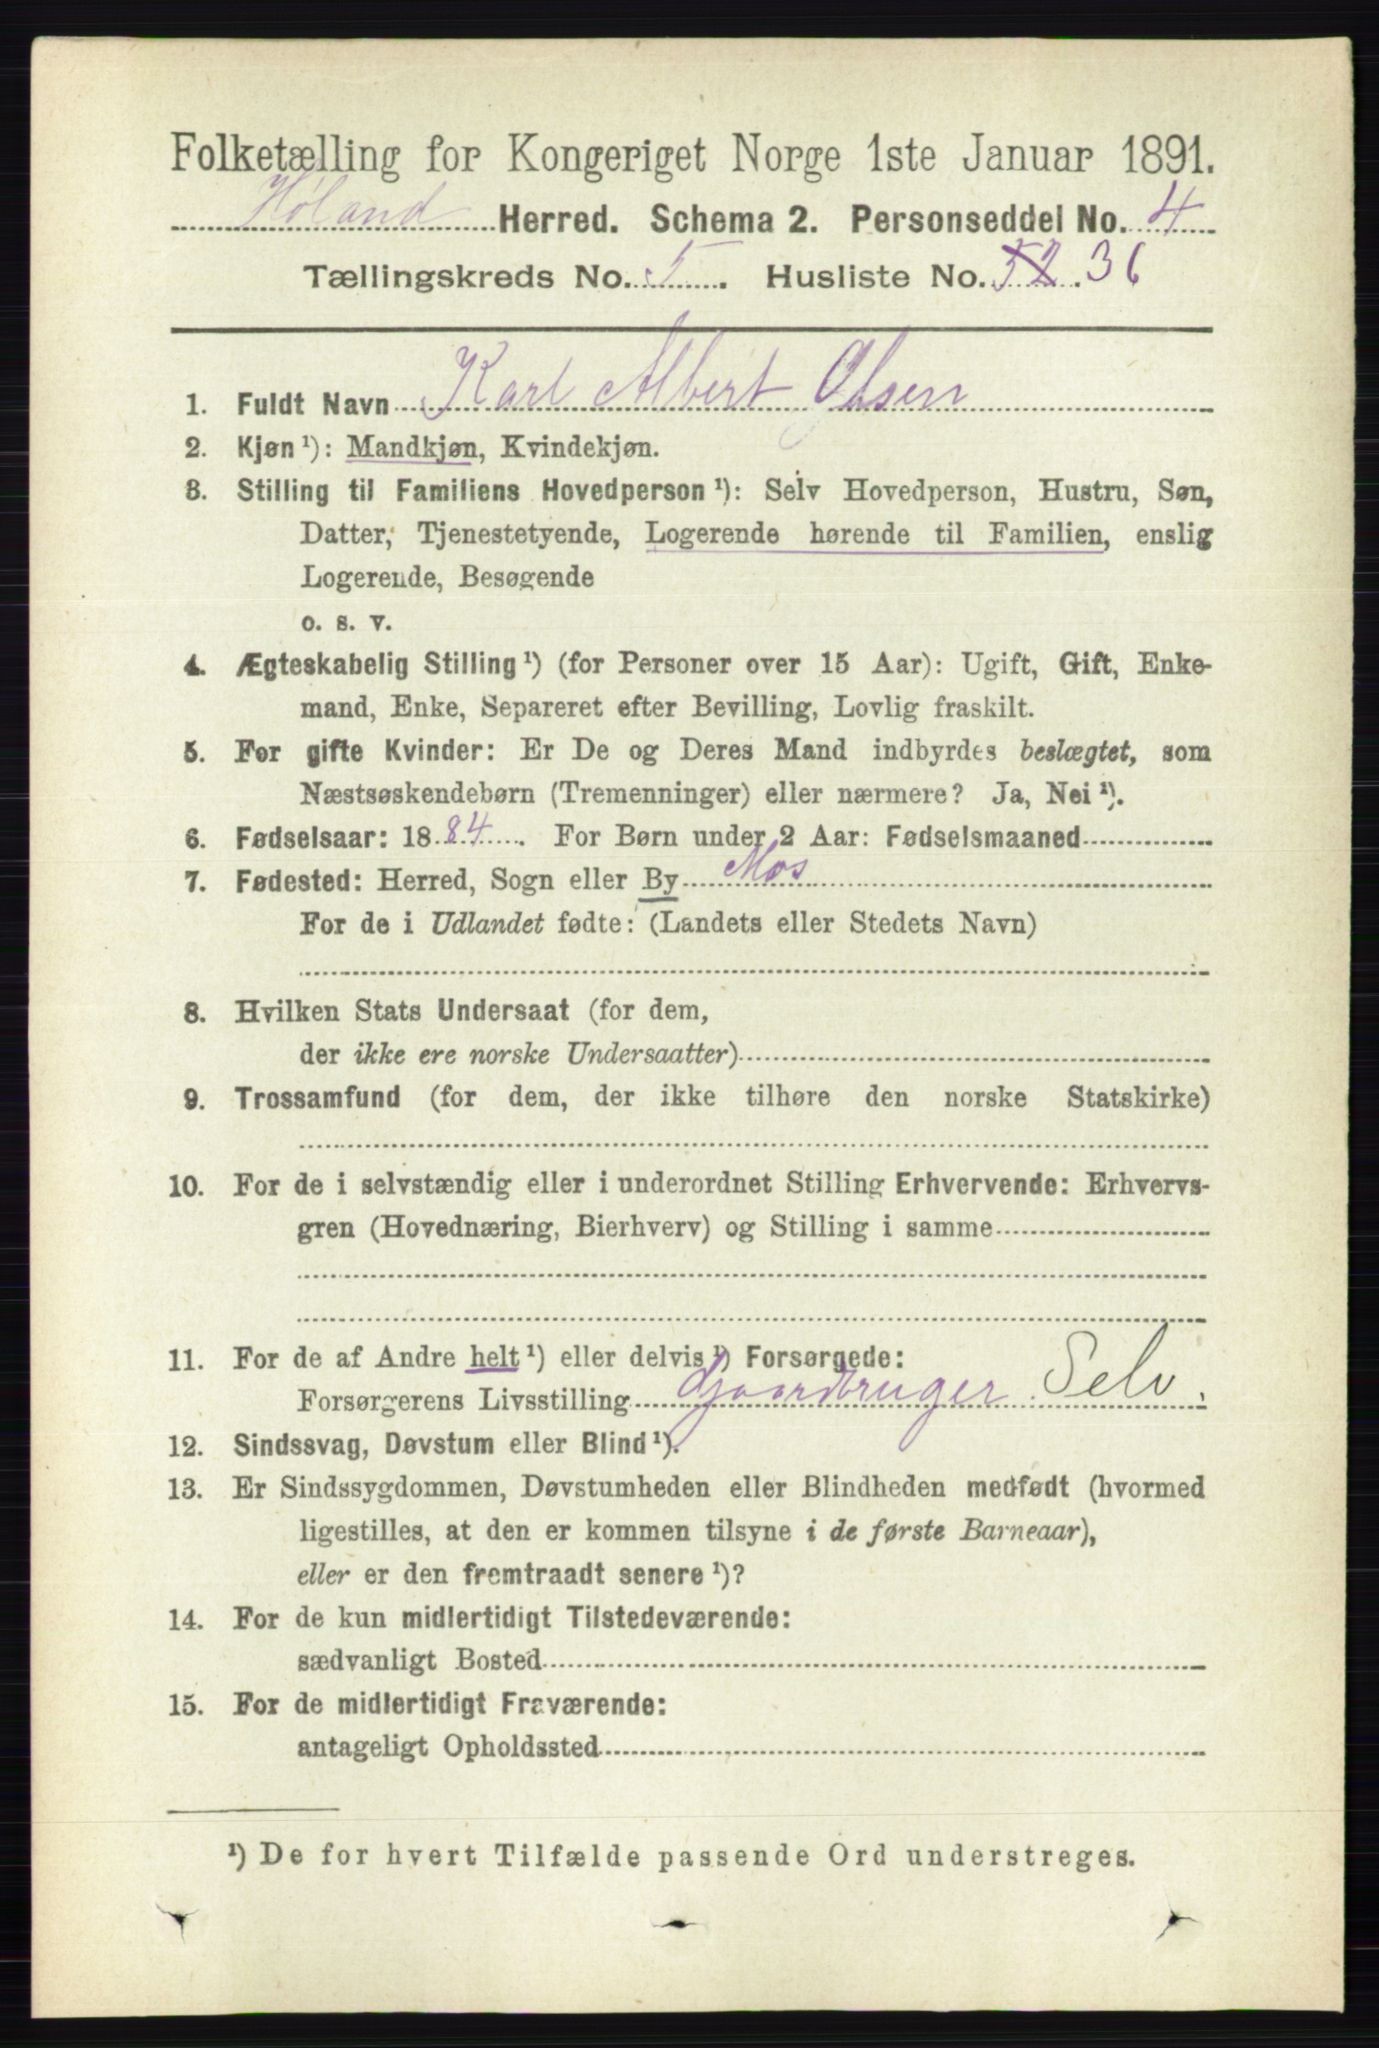 Folketælling for Kongeriget Norge 1ste Januar 1891.
Høland Herred. Schema 2. Personseddel No. 4
Tællingskreds No. 5. Husliste No. 52. 36
1. Fuldt Navn Karl Albert Olsen
2. Kjøn ¹): Mandkjøn, Kvindekjøn.
3. Stilling til Familiens Hovedperson ¹): Selv Hovedperson, Hustru, Søn,
Datter, Tjenestetyende, Logerende hørende til Familien, enslig
Logerende, Besøgende
o. s. v.
4. Ægteskabelig Stilling ¹) (for Personer over 15 Aar): Ugift, Gift, Enke-
mand, Enke, Separeret efter Bevilling, Lovlig fraskilt.
5. For gifte Kvinder: Er De og Deres Mand indbyrdes beslægtet, som
Næstsøskendebørn (Tremenninger) eller nærmere? Ja, Nei ¹).
6. Fødselsaar: 1884. For Børn under 2 Aar: Fødselsmaaned
7. Fødested: Herred, Sogn eller By Mos
For de i Udlandet fødte: (Landets eller Stedets Navn)
8. Hvilken Stats Undersaat (for dem,
der ikke ere norske Undersaatter)
9. Trossamfund (for dem, der ikke tilhøre den norske Statskirke)
10. For de i selvstændig eller i underordnet Stilling Erhvervende: Erhvervs-
gren (Hovednæring, Bierhverv) og Stilling i samme
11. For de af Andre helt ¹) eller delvis ¹) Forsørgede:
Forsørgerens Livsstilling Gaardbruger Selv.
12. Sindssvag, Døvstum eller Blind ¹).
13. Er Sindssygdommen, Døvstumheden eller Blindheden medfødt (hvormed
ligestilles, at den er kommen tilsyne i de første Barneaar),
eller er den fremtraadt senere ¹)?
14. For de kun midlertidigt Tilstedeværende:
sædvanligt Bosted
15. For de midlertidigt Fraværende:
antageligt Opholdssted
¹) De for hvert Tilfælde passende Ord understreges.